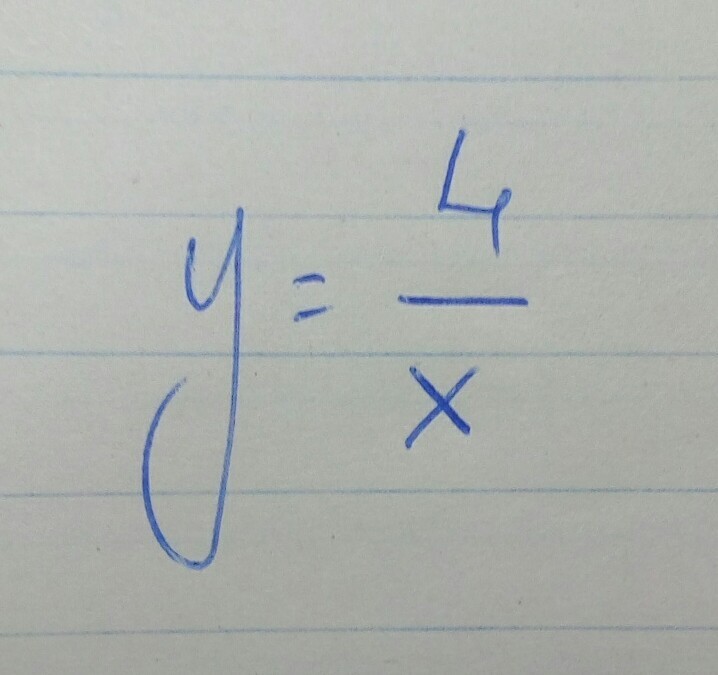 y = 4/x